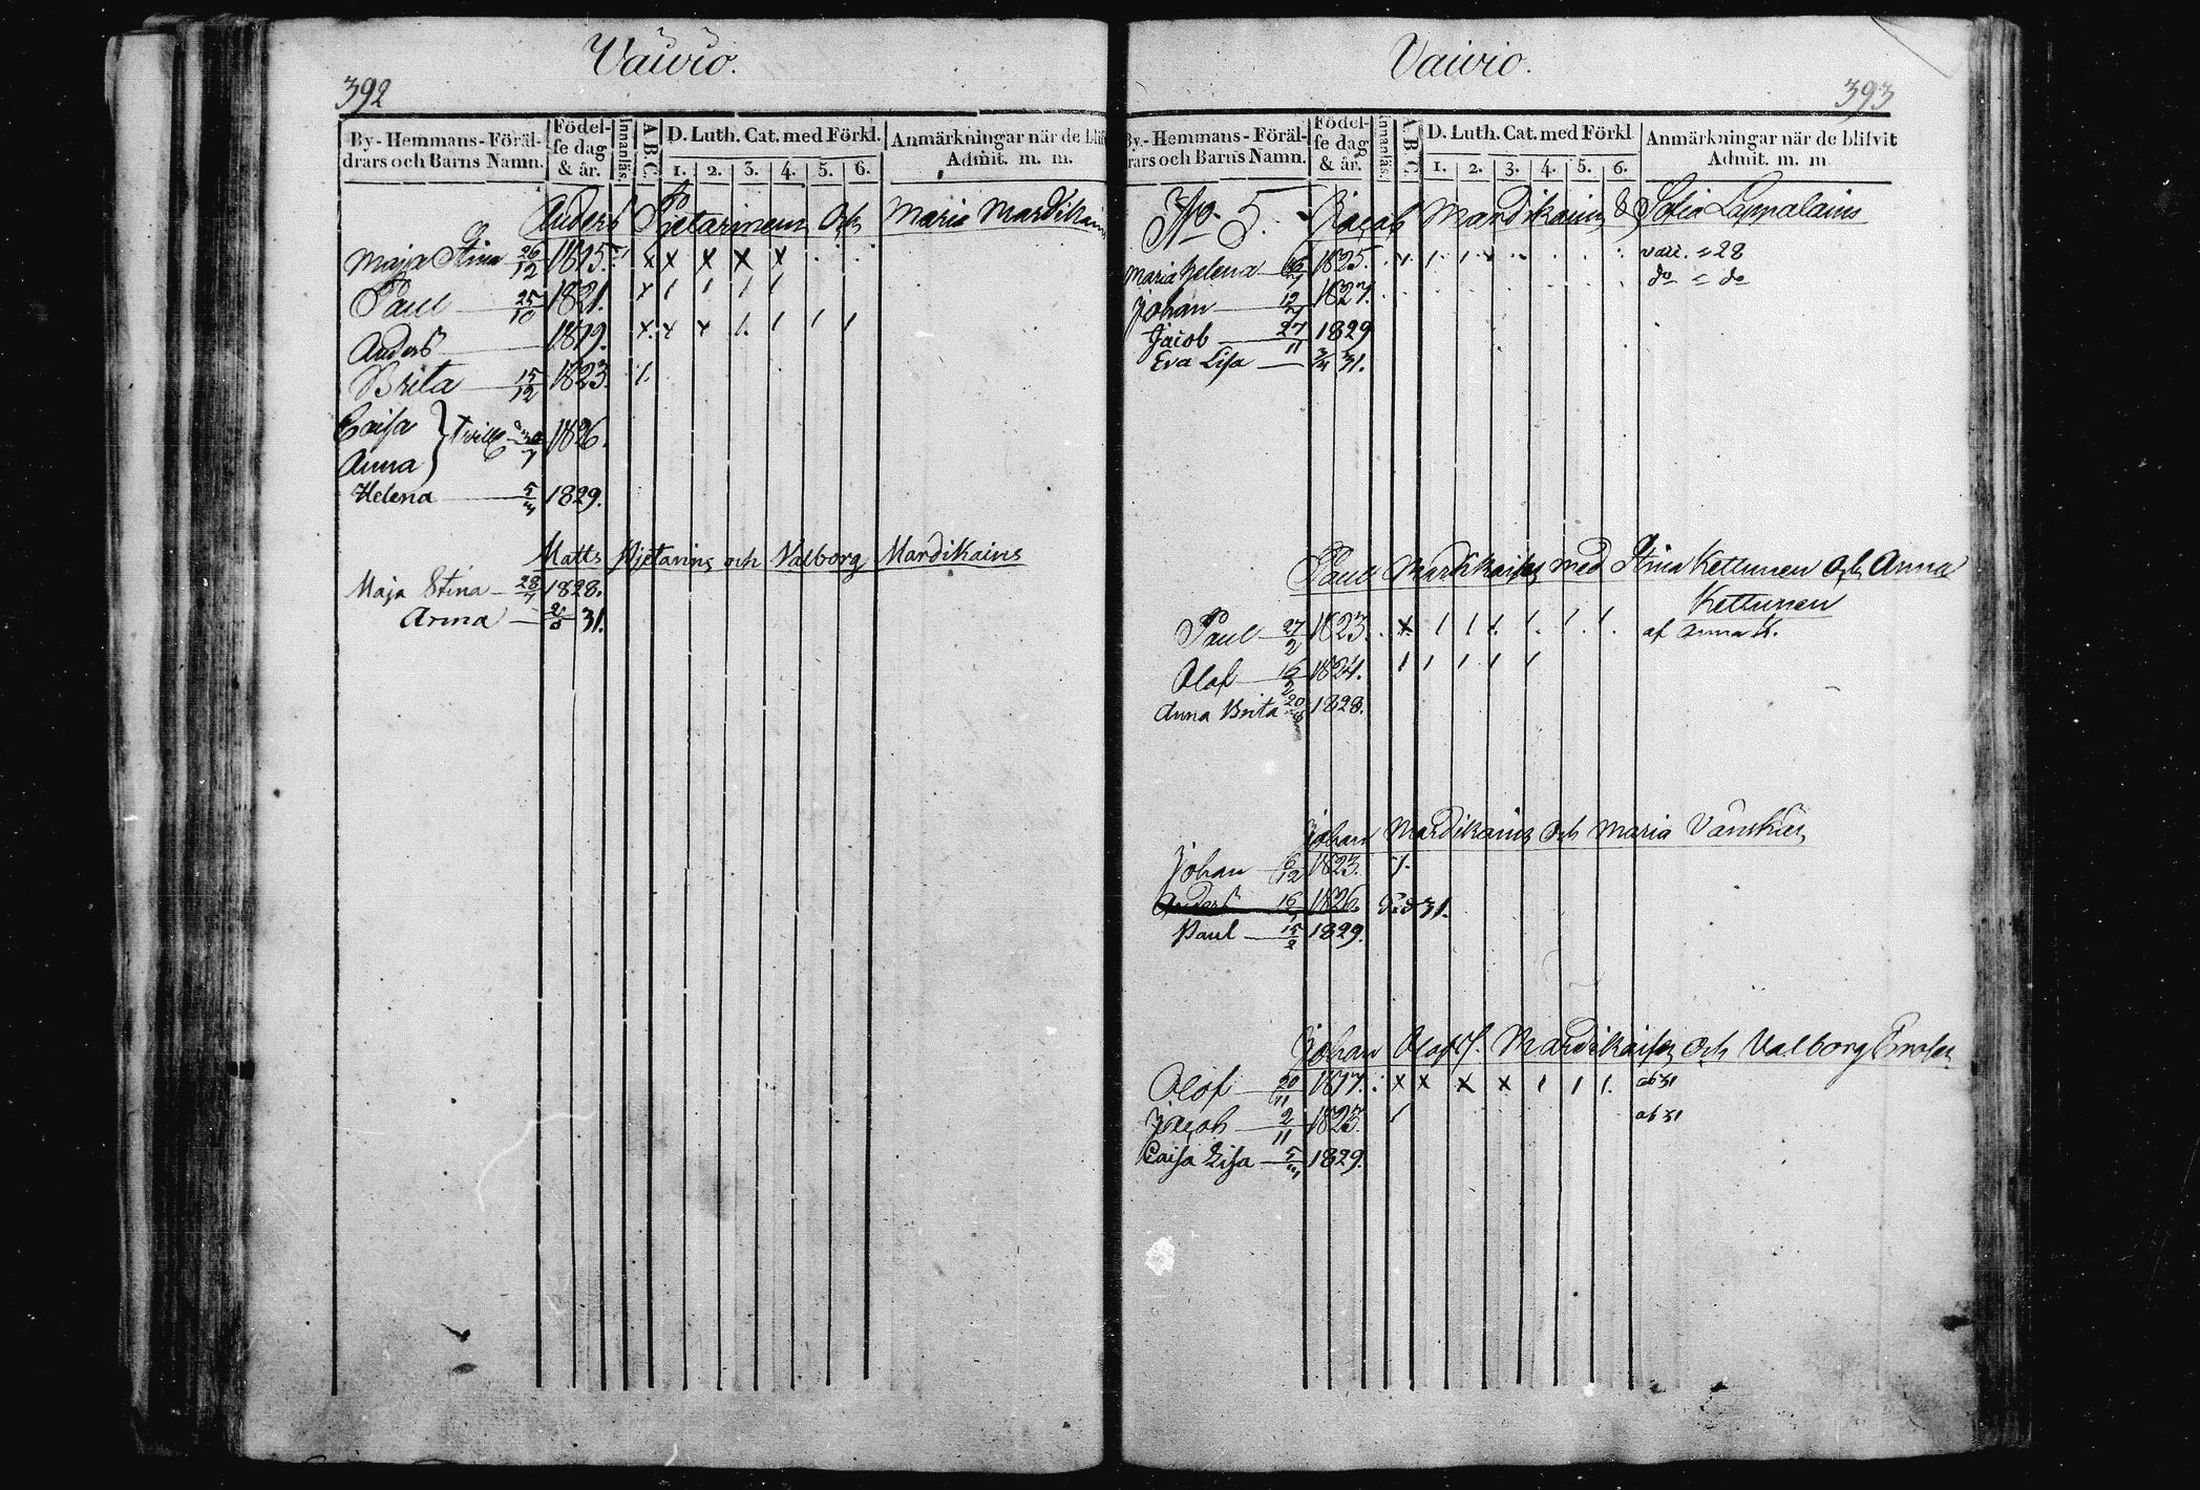 Vaivio.
392
By- Hemmans- Föräl-
drars och Barns Namn.
Födel-
se dag
& år.
Innanläs.
A.B.C.
D. Luth. Cat. med Förkl.
1. 2. 3. 4. 5. 6.
Anmärkningar när de blif
Admit. m. m.
Anders Pjetarinen och Maria Mardikain
Maja Stina 26/12 1815. x x x x x
Paul 25/10 1821. x 1 1 1 1
Anders 1819. x x x 1. 1 1 1
Brita 15/12 1823. 1.
Caisa } Tvill 1826.
Anna
Helena 1829.
Matts Pjetarins och Valborg Mardikains
Maja Stina 28/7 1828.
Anna 31.
Vaivio.
393
By- Hemmans- Föräl-
rars och Barns Namn.
Födel-
se dag
& år.
Innanläs.
A.B.C.
D. Luth. Cat. med Förkl
1. 2. 3. 4. 5. 6.
Anmärkningar när de blifvit
Admit. m. m
No 5. Jacob Mardikains & Sofia Lappalains
Maria Helena 1825. vacc. = 28
Johan 1827. do = do
Jacob 27/11 1829
Eva Lisa 31.
Paul Mardikaisen med Stina Kettunen och Anna
Kettunen
Paul 27/2 1823. x 1 1 1. 1. 1. 1. af Anna K.
Olof 1824. 1 1 1 1 1
Anna Brita 1828.
Johan Mardikains och Maria Vänskien
Johan 6/12 1823. 1.
Anders 1826. 31.
Paul 15/2 1829.
Johan Olofs. Mardikaisen och Valborg
Olof 20/11 1817. x x x x 1 1 1. ab 31
Jacob 2/11 1823. 1 ab 31
Caisa Lisa 1829.